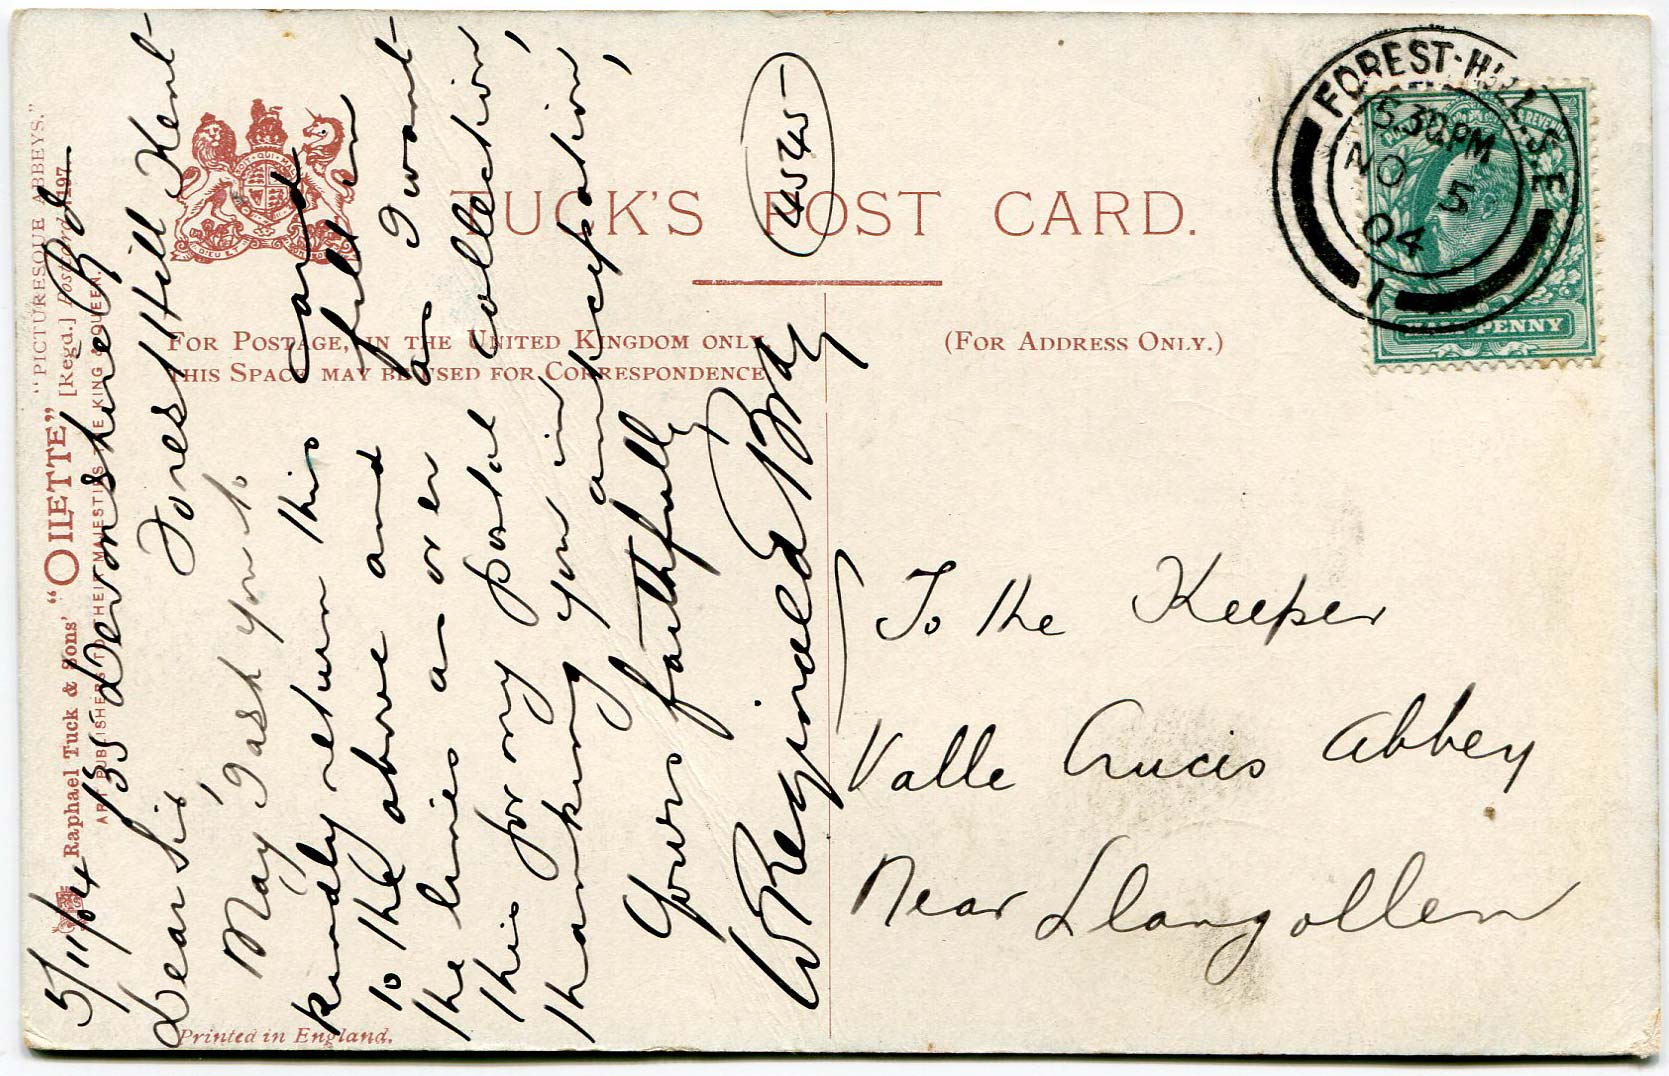 TUCK'S POST CARD.
FOR POSTAGE, IN THE UNITED KINGDOM ONLY,
THIS SPACE MAY BE USED FOR CORRESPONDENCE.
(FOR ADDRESS ONLY.)
"PICTURESQUE ABBEYS."
Raphael Tuck & Sons' "OILETTE" [Regd.] Postcard 197.
ART PUBLISHERS TO THEIR MAJESTIES THE KING & QUEEN.
Printed in England.
FOREST-HILL.S.E
5.30PM
NO 5
04
1
POSTAGE REVENUE
HALFPENNY
4545
5/11/04 135 Devonshire Rd
Forest Hill Kent
Dear Sir,
May I ask you to
kindly return this card
to the above and filled in
the lines as over as I want
this for my postal collection,
thanking you in anticipation,
Yours faithfully
W Reginald Bray
To the Keeper
Valle Crucis Abbey
Near Llangollen